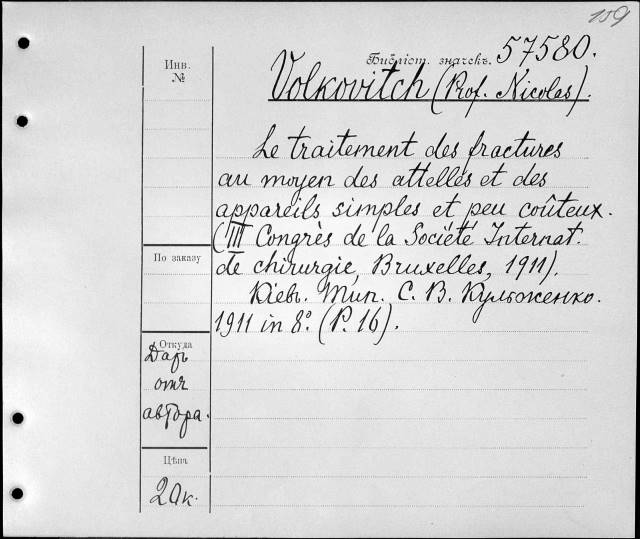 159
Библіот. значекъ. 57580.
Инв.
№
Volkovitch (Prof. Nicolas).
Le traitement des fractures
au moyen des attelles et des
appareils simples et peu coûteux.
(III Congrès de la Société Internat.
de chirurgie, Bruxelles, 1911).
По заказу
Кіевъ. Тип. С. В. Кульженко.
1911 in 8° (P. 16).
Откуда
Даръ
отъ
автора.
Цѣна
20к.